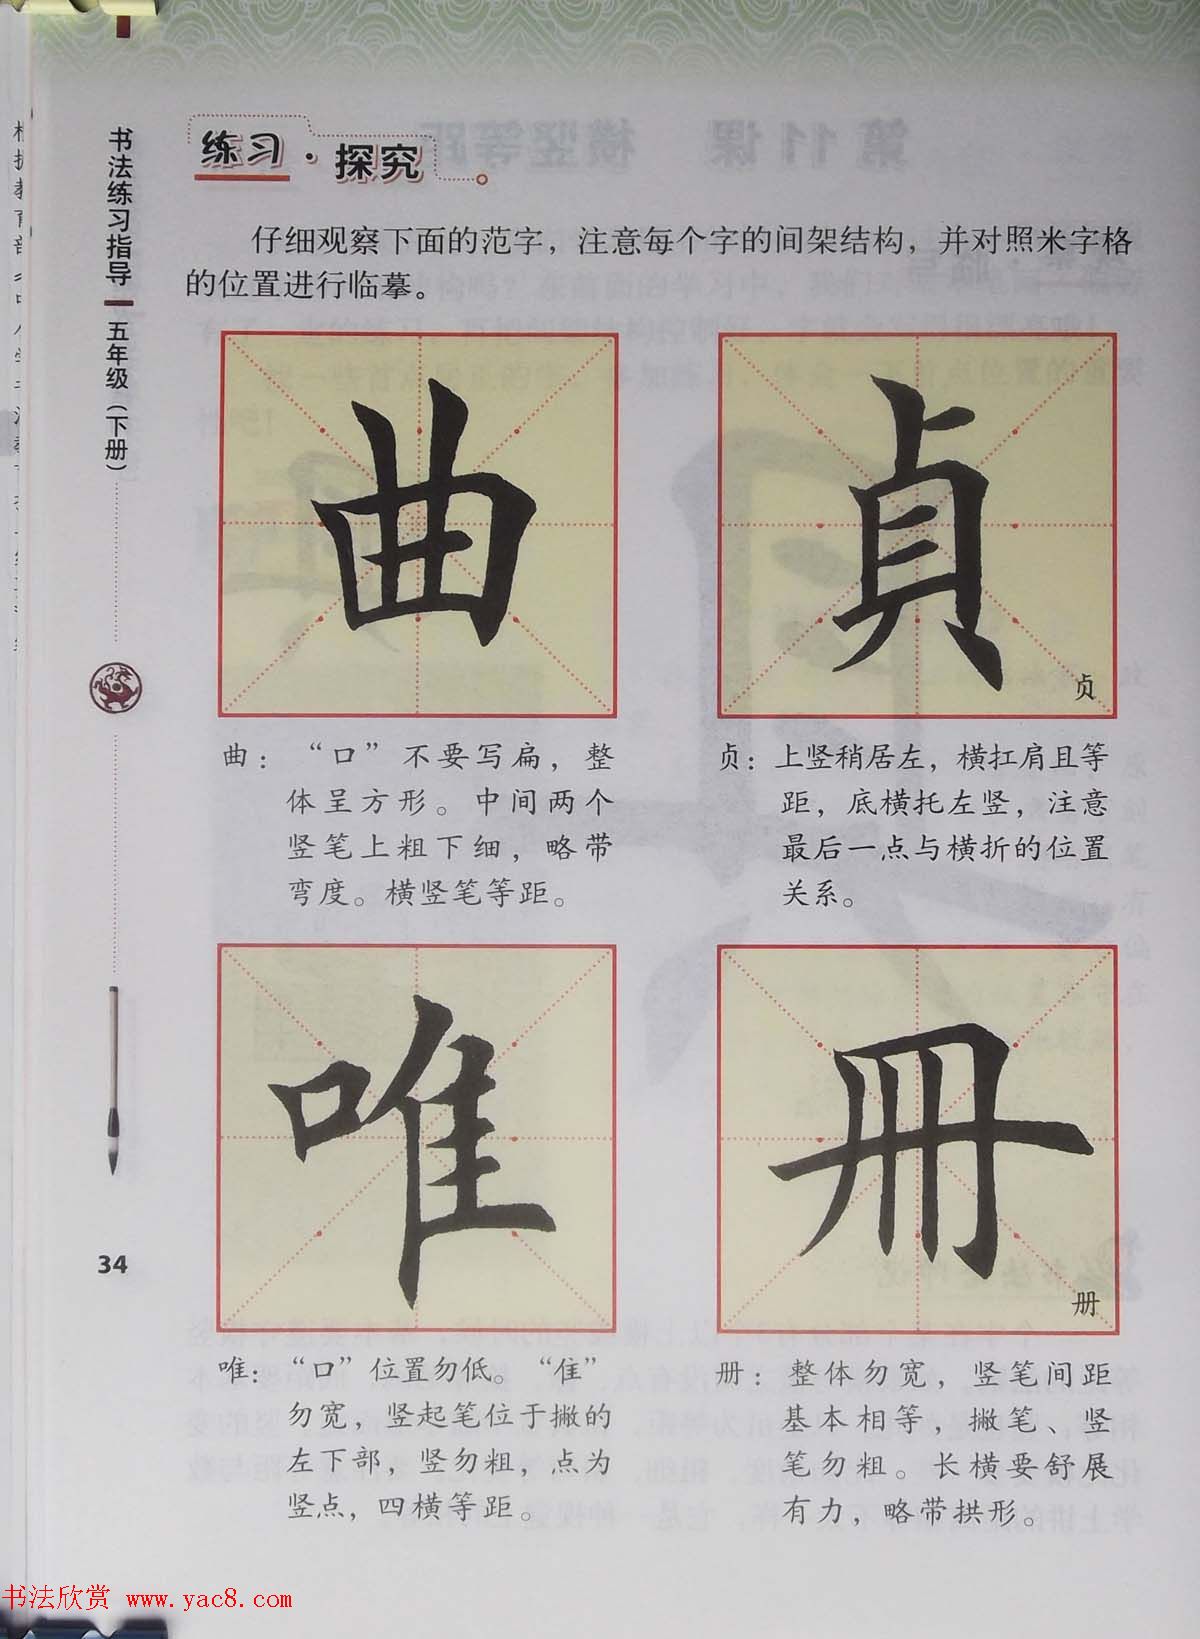 书法练习指导
五年级（下册）
34
练习·探究
仔细观察下面的范字，注意每个字的间架结构，并对照米字格
的位置进行临摹。
曲
貞
贞
曲：“口”不要写扁，整
体呈方形。中间两个
竖笔上粗下细，略带
弯度。横竖笔等距。
贞：上竖稍居左，横扛肩且等
距，底横托左竖，注意
最后一点与横折的位置
关系。
唯
冊
册
唯：“口”位置勿低。“隹”
勿宽，竖起笔位于撇的
左下部，竖勿粗，点为
竖点，四横等距。
册：整体勿宽，竖笔间距
基本相等，撇笔、竖
笔勿粗。长横要舒展
有力，略带拱形。
书法欣赏 www.yac8.com